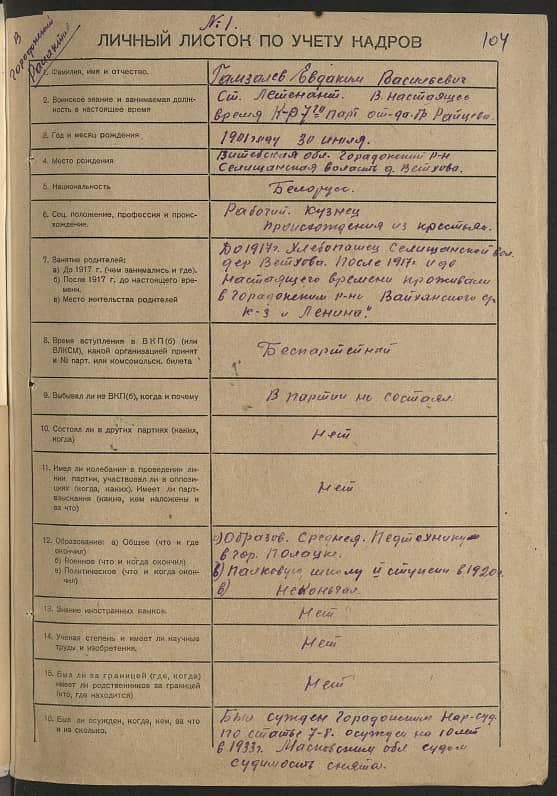 В
Городокский
Райвоенкомат
№ 1.
ЛИЧНЫЙ ЛИСТОК ПО УЧЕТУ КАДРОВ
104
1. Фамилия, имя и отчество.
Гамзалев Евдаким Васильевич
2. Воинское звание и занимаемая долж-
ность в настоящее время
Ст. Летенант. В настоящее
время К-р 7го парт от-да. Гр Райцева.
3. Год и месяц рождения
1901 году 30 июля.
4. Место рождения
Витебская обл. Горадокский р-н
Селищанская воласть д. Ветхова.
5. Национальность
Белорусс.
6. Соц. положение, профессия и проис-
хождение.
Рабочий. Кузнец
Происхождения из крестьян.
7. Занятие родителей:
а) До 1917 г. (чем занимались и где).
б) После 1917 г. до настоящего вре-
мени.
в) Место жительства родителей
До 1917г. Хлебопашец Селищанской вол.
дер Ветхова. После 1917г. и до
настоящего времени проживали
в Горадокским р-не Вайханского ср
к-з и Ленина."
8. Время вступления в ВКП(б) (или
ВЛКСМ), какой организацией принят
и № парт. или комсомольск. билета
Беспартейный
9. Выбывал ли из ВКП(б), когда и почему
В партии не состаял
10. Состоял ли в других партиях (каких,
когда)
Нет
11. Имел ли колебания в проведении ли-
нии партии, участвовал ли в оппози-
циях (когда, каких). Имеет ли парт-
взыскания (какие, кем наложены и
за что)
Нет
12. Образование: а) Общее (что и где
окончил)
б) Военное (что и когда окончил)
в) Политическое (что и когда окон-
чил)
а) Образов. Среднея. Педтехникум
в гор. Полацке.
б) Палковую школу II ступени в 1920г.
в) Не кончал.
13. Знание иностранных языков.
Нет
14. Ученая степень и имеет ли научные
труды и изобретения.
Нет
15. Был ли за границей (где, когда)
имеет ли родственников за границей
(кто, где находится)
Нет
16. Был ли осужден, когда, кем, за что
и на сколько.
Был сужден Горадокским Нар-суд.
по статье 7-8. осужден на 10 лет
в 1933г. Масковским обл судом
судимость снята.